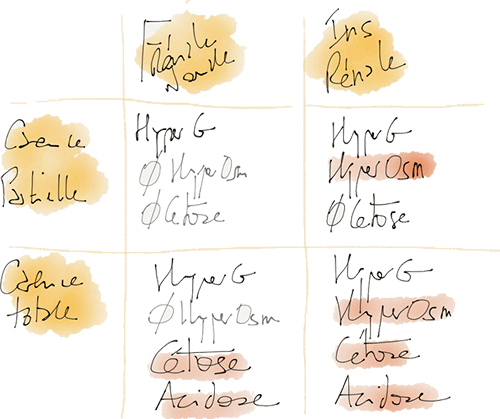 F°
Rénale
Normale
Ins
Rénale
Carence
Partielle
HyperG
Ø HyperOsm
Ø Cétose
HyperG
HyperOsm
Ø Cétose
Carence
totale
HyperG
Ø HyperOsm
Cétose
Acidose
HyperG
HyperOsm
Cétose
Acidose